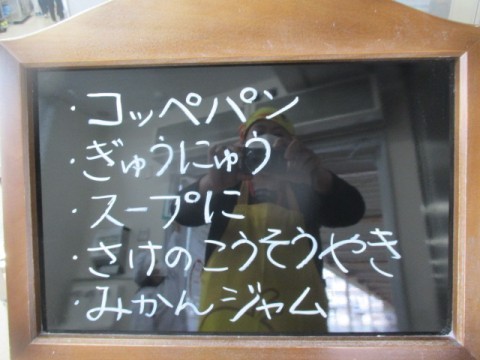 ・コッペパン
・ぎゅうにゅう
・スープに
・さけのこうそうやき
・みかんジャム